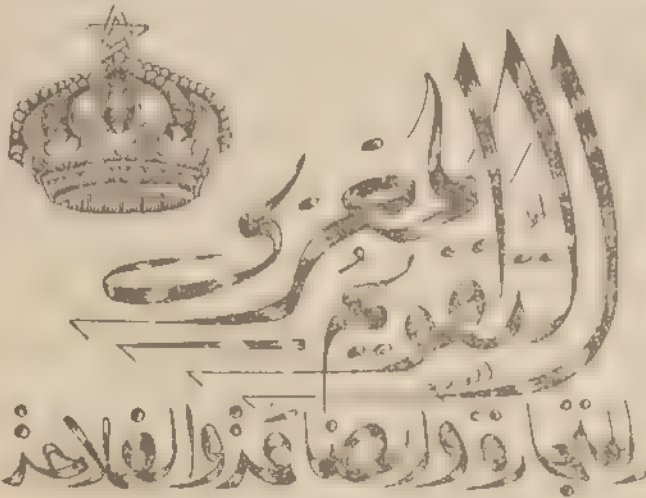 التقويم المصري
التجارة والصناعة والفلاحة